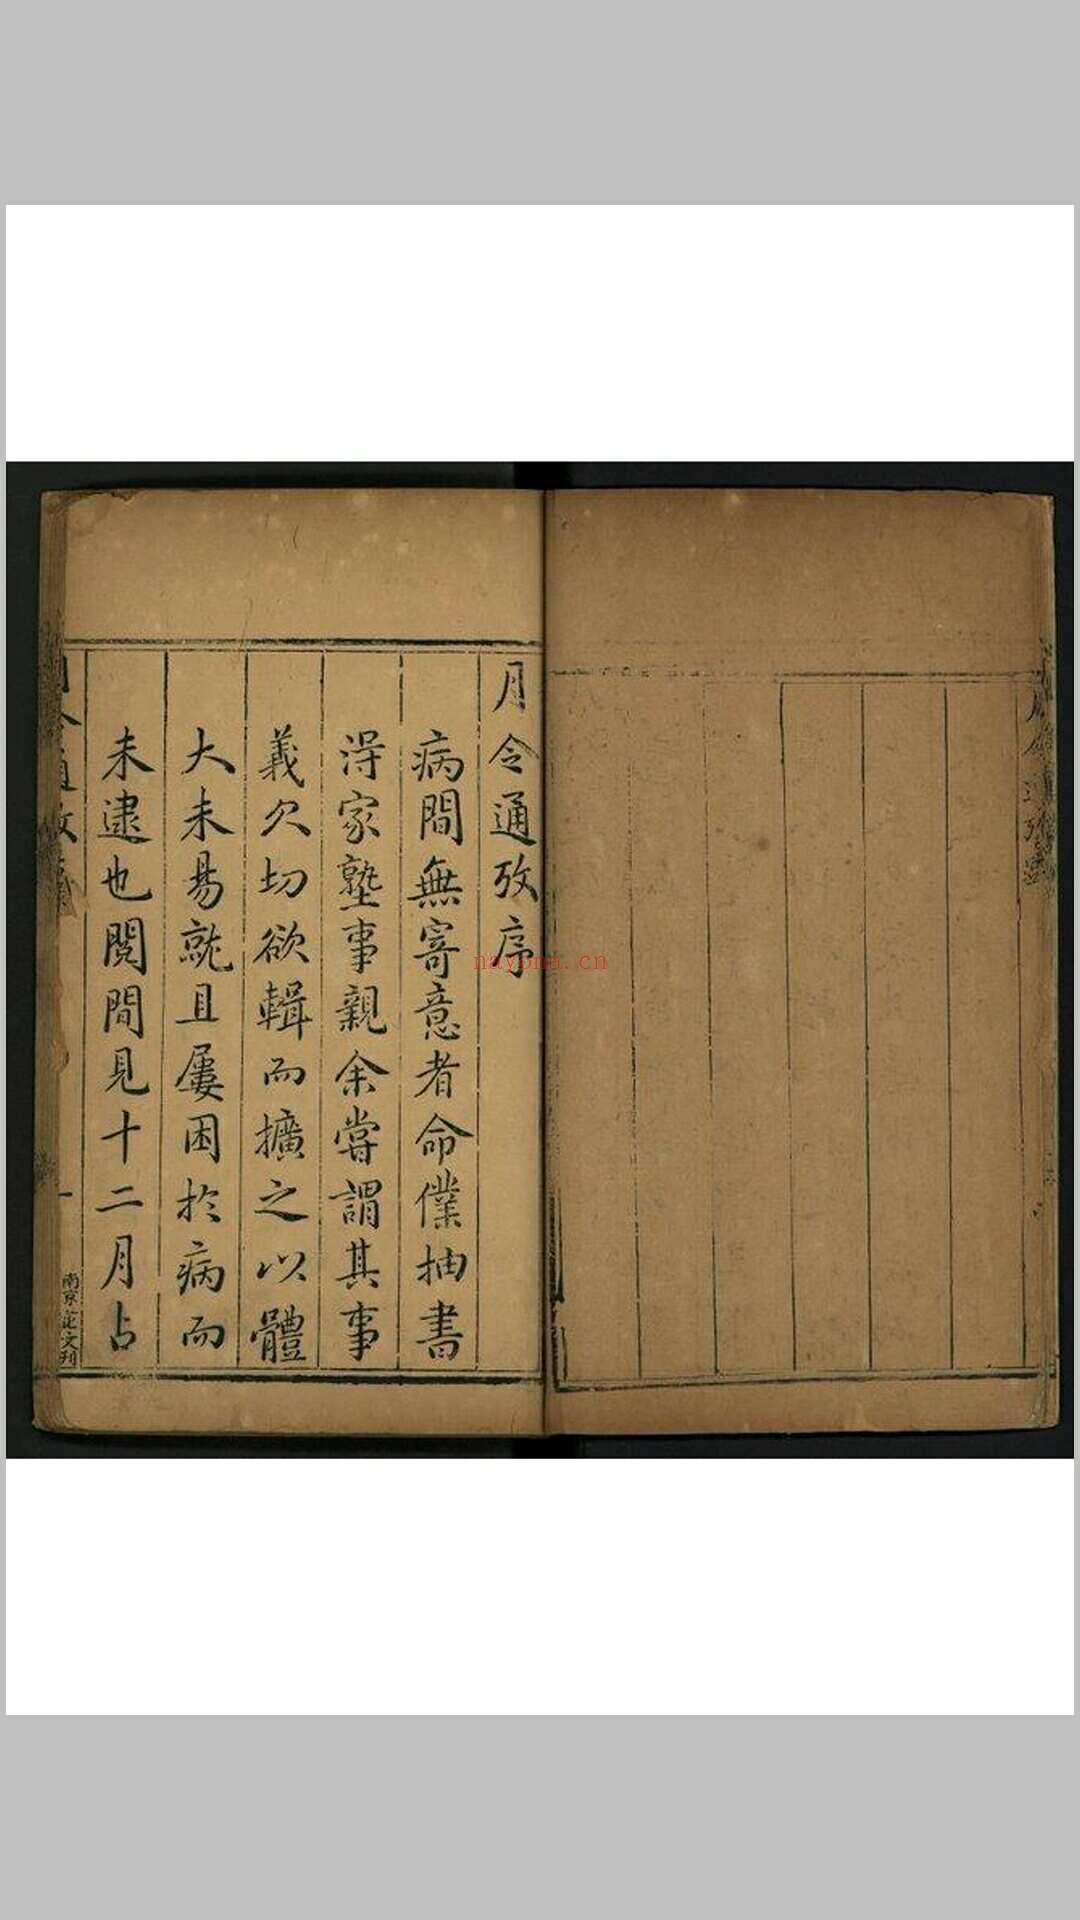 月令通攷序
病間無寄意者命僕抽書
淂家塾事親余嘗謂其事
義欠切欲輯而擴之以體
大未易就且屢困於病而
未逮也閱間見十二月占
月令通攷
一
nayona.cn